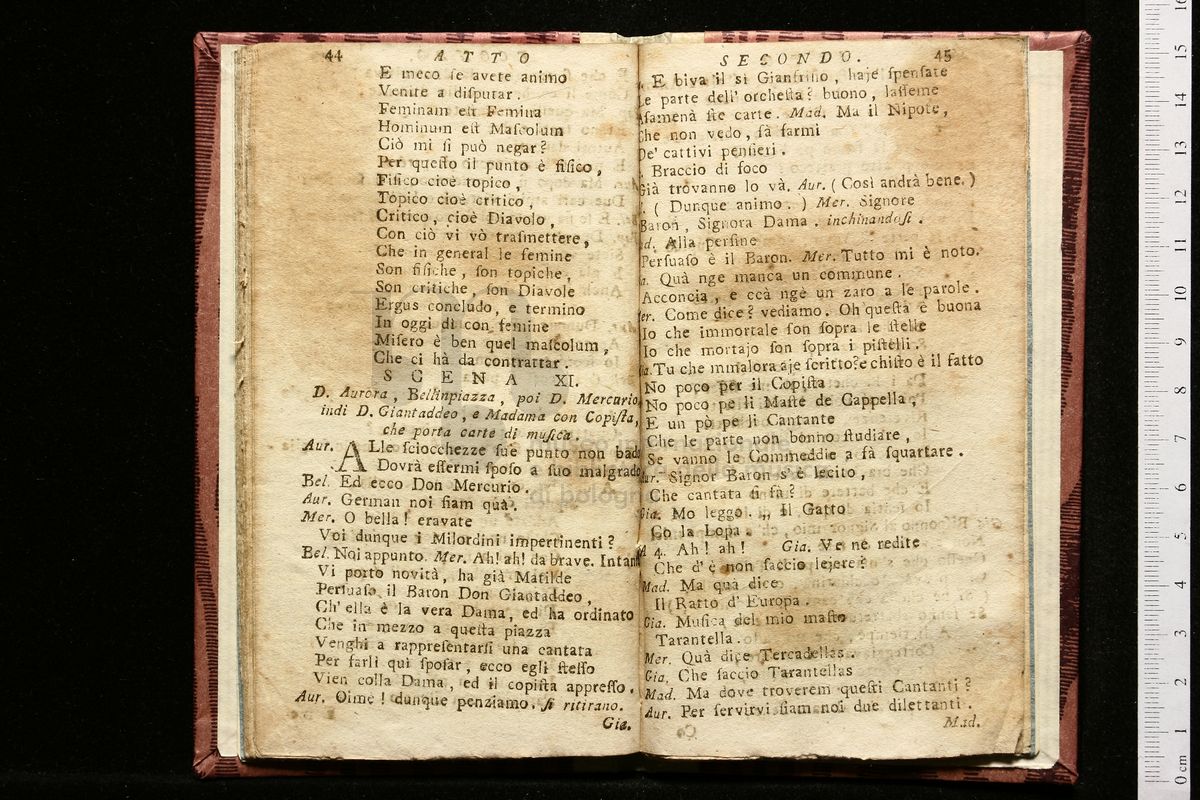 44 ATTO
E meco ſe avete animo
Venite a diſputar.
Feminam eſt Femina
Hominum eſt Maſcolum
Ciò mi ſi può negar?
Per queſto il punto è fiſico,
Fiſico cioè topico,
Topico cioè critico,
Critico, cioè Diavolo,
Con ciò vi vò traſmettere,
Che in general le femine
Son fiſiche, ſon topiche,
Son critiche, ſon Diavole
Ergus concludo, e termino
In oggi dì con femine
Miſero è ben quel maſcolum,
Che ci hà da contrattar.
SCENA XI.
D. Aurora, Bellinpiazza, poi D. Mercurio
indi D. Giantaddeo, e Madama con Copiſta,
che porta carte di muſica.
Aur. ALle ſciocchezze ſue punto non bado
Dovrà eſſermi ſpoſo a ſuo malgrado
Bel. Ed ecco Don Mercurio.
Aur. German noi ſiam quà.
Mer. O bella! eravate
Voi dunque i Milordini impertinenti?
Bel. Noi appunto. Mer. Ah! ah! da brave. Intan
Vi porto novità, ha già Matilde
Perſuaſo il Baron Don Giantaddeo,
Ch' ella è la vera Dama, ed ha ordinato
Che in mezzo a queſta piazza
Venghi a rappreſentarſi una cantata
Per farli quì ſpoſar, ecco egli ſteſſo
Vien colla Dama, ed il copiſta appreſſo.
Aur. Oime! dunque penziamo. ſi ritirano.
Gia.
SECONDO. 45
E biva il si Gianfriſio, haje ſpenſate
Le parte dell' orcheſta? buono, laſſeme
ſamenà ſte carte. Mad. Ma il Nipote,
Che non vedo, fà farmi
De' cattivi penſieri.
Braccio di foco
Già trovanno lo và. Aur. (Così andrà bene.)
(Dunque animo.) Mer. Signore
Baron, Signora Dama. inchinandoſi.
d. Alla perfine
Perſuaſo è il Baron. Mer. Tutto mi è noto.
a. Quà nge manca un commune.
Acconcia, e ccà nge un zaro a le parole.
er. Come dice? vediamo. Oh queſta è buona
Io che immortale ſon ſopra le ſtelle
Io che mortajo ſon ſopra i piſtelli.
ia. Tu che mmalora aje ſcritto? e chiſto è il fatto
No poco per il Copiſta
No poco pe li Maſte de Cappella,
E un pò pe li Cantante
Che le parte non bonno ſtudiare,
Se vanno le Commeddie a fà ſquartare.
ur. Signor Baron s' è lecito,
Che cantata ſi fà?
Gia. Mo leggo. „ Il Gatto
Co la Lopa.
A 4. Ah! ah! Gia. Ve ne redite
Che d' è non faccio lejere?
Mad. Ma quà dice
Il Ratto d' Europa.
Gia. Muſica del mio maſto
Tarantella.
Mer. Quà dice Tercadellas.
Gia. Che faccio Tarantellas
Mad. Ma dove troverem queſti Cantanti?
Aur. Per ſervirvi ſiam noi due dilettanti.
Mad.